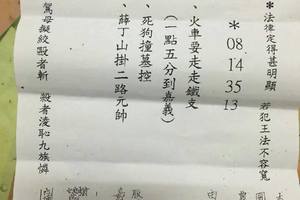 *法律定得甚明顯 若犯王法不容寬
*08.14 35 13
、火車要走走鐵支
(一點五分到嘉義)
、死狗撞墓控
、薛丁山掛二路元帥
駕母擬絞毆者斬 殺者淩恥九族憐